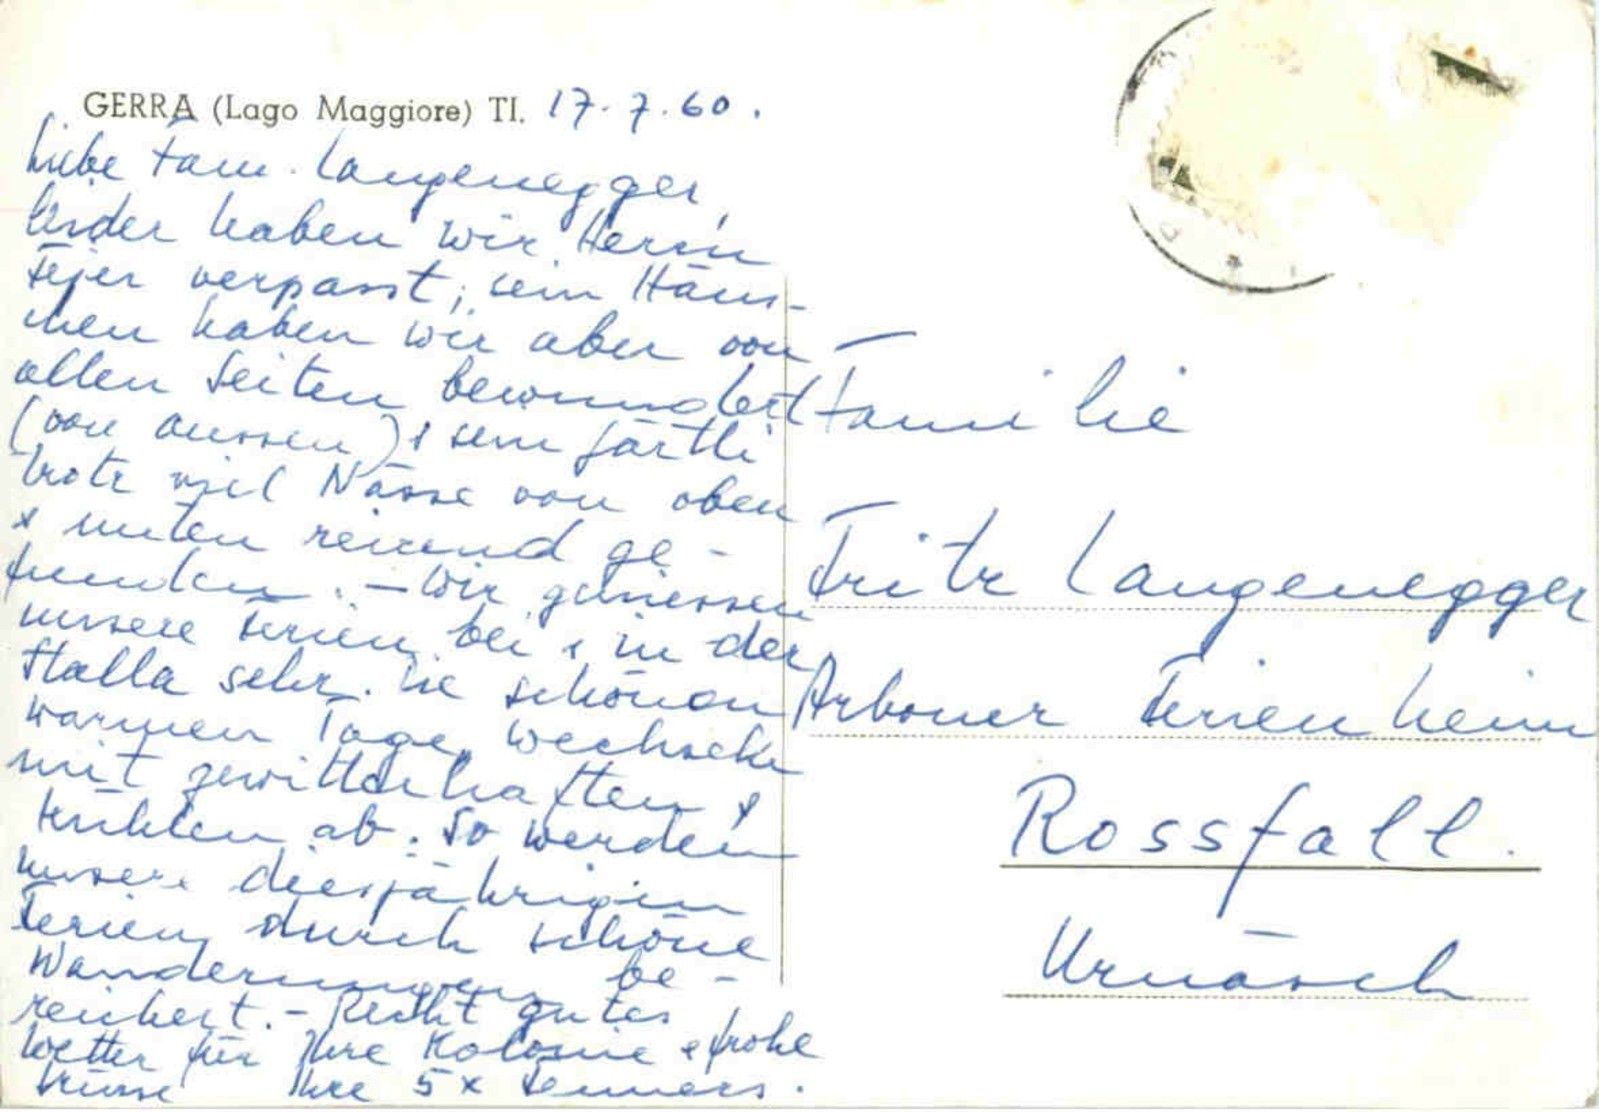 GERRA (Lago Maggiore) TI. 17.7.60.
Liebe Fam. Langenegger,
leider haben wir Herrn
verpasst; sein Häus-
chen haben wir aber von
allen Seiten bewundert
(von aussen) & sein Gärtli
trotz viel Nässe von oben
& unten reizend ge-
funden. – Wir geniessen
unsere Ferien bei & in der
Stalla sehr. Die schönen
warmen Tage wechseln
mit gewitterhaften &
kühlen ab. So werden
unsere diesjährigen
Ferien durch schöne
Wanderungen be-
reichert. – Recht gutes
Wetter für Ihre Kolonie & frohe
Grüsse Ihre 5x
Familie
Fritz Langenegger
Arboner Ferienheim
Rossfall.
Urnäsch